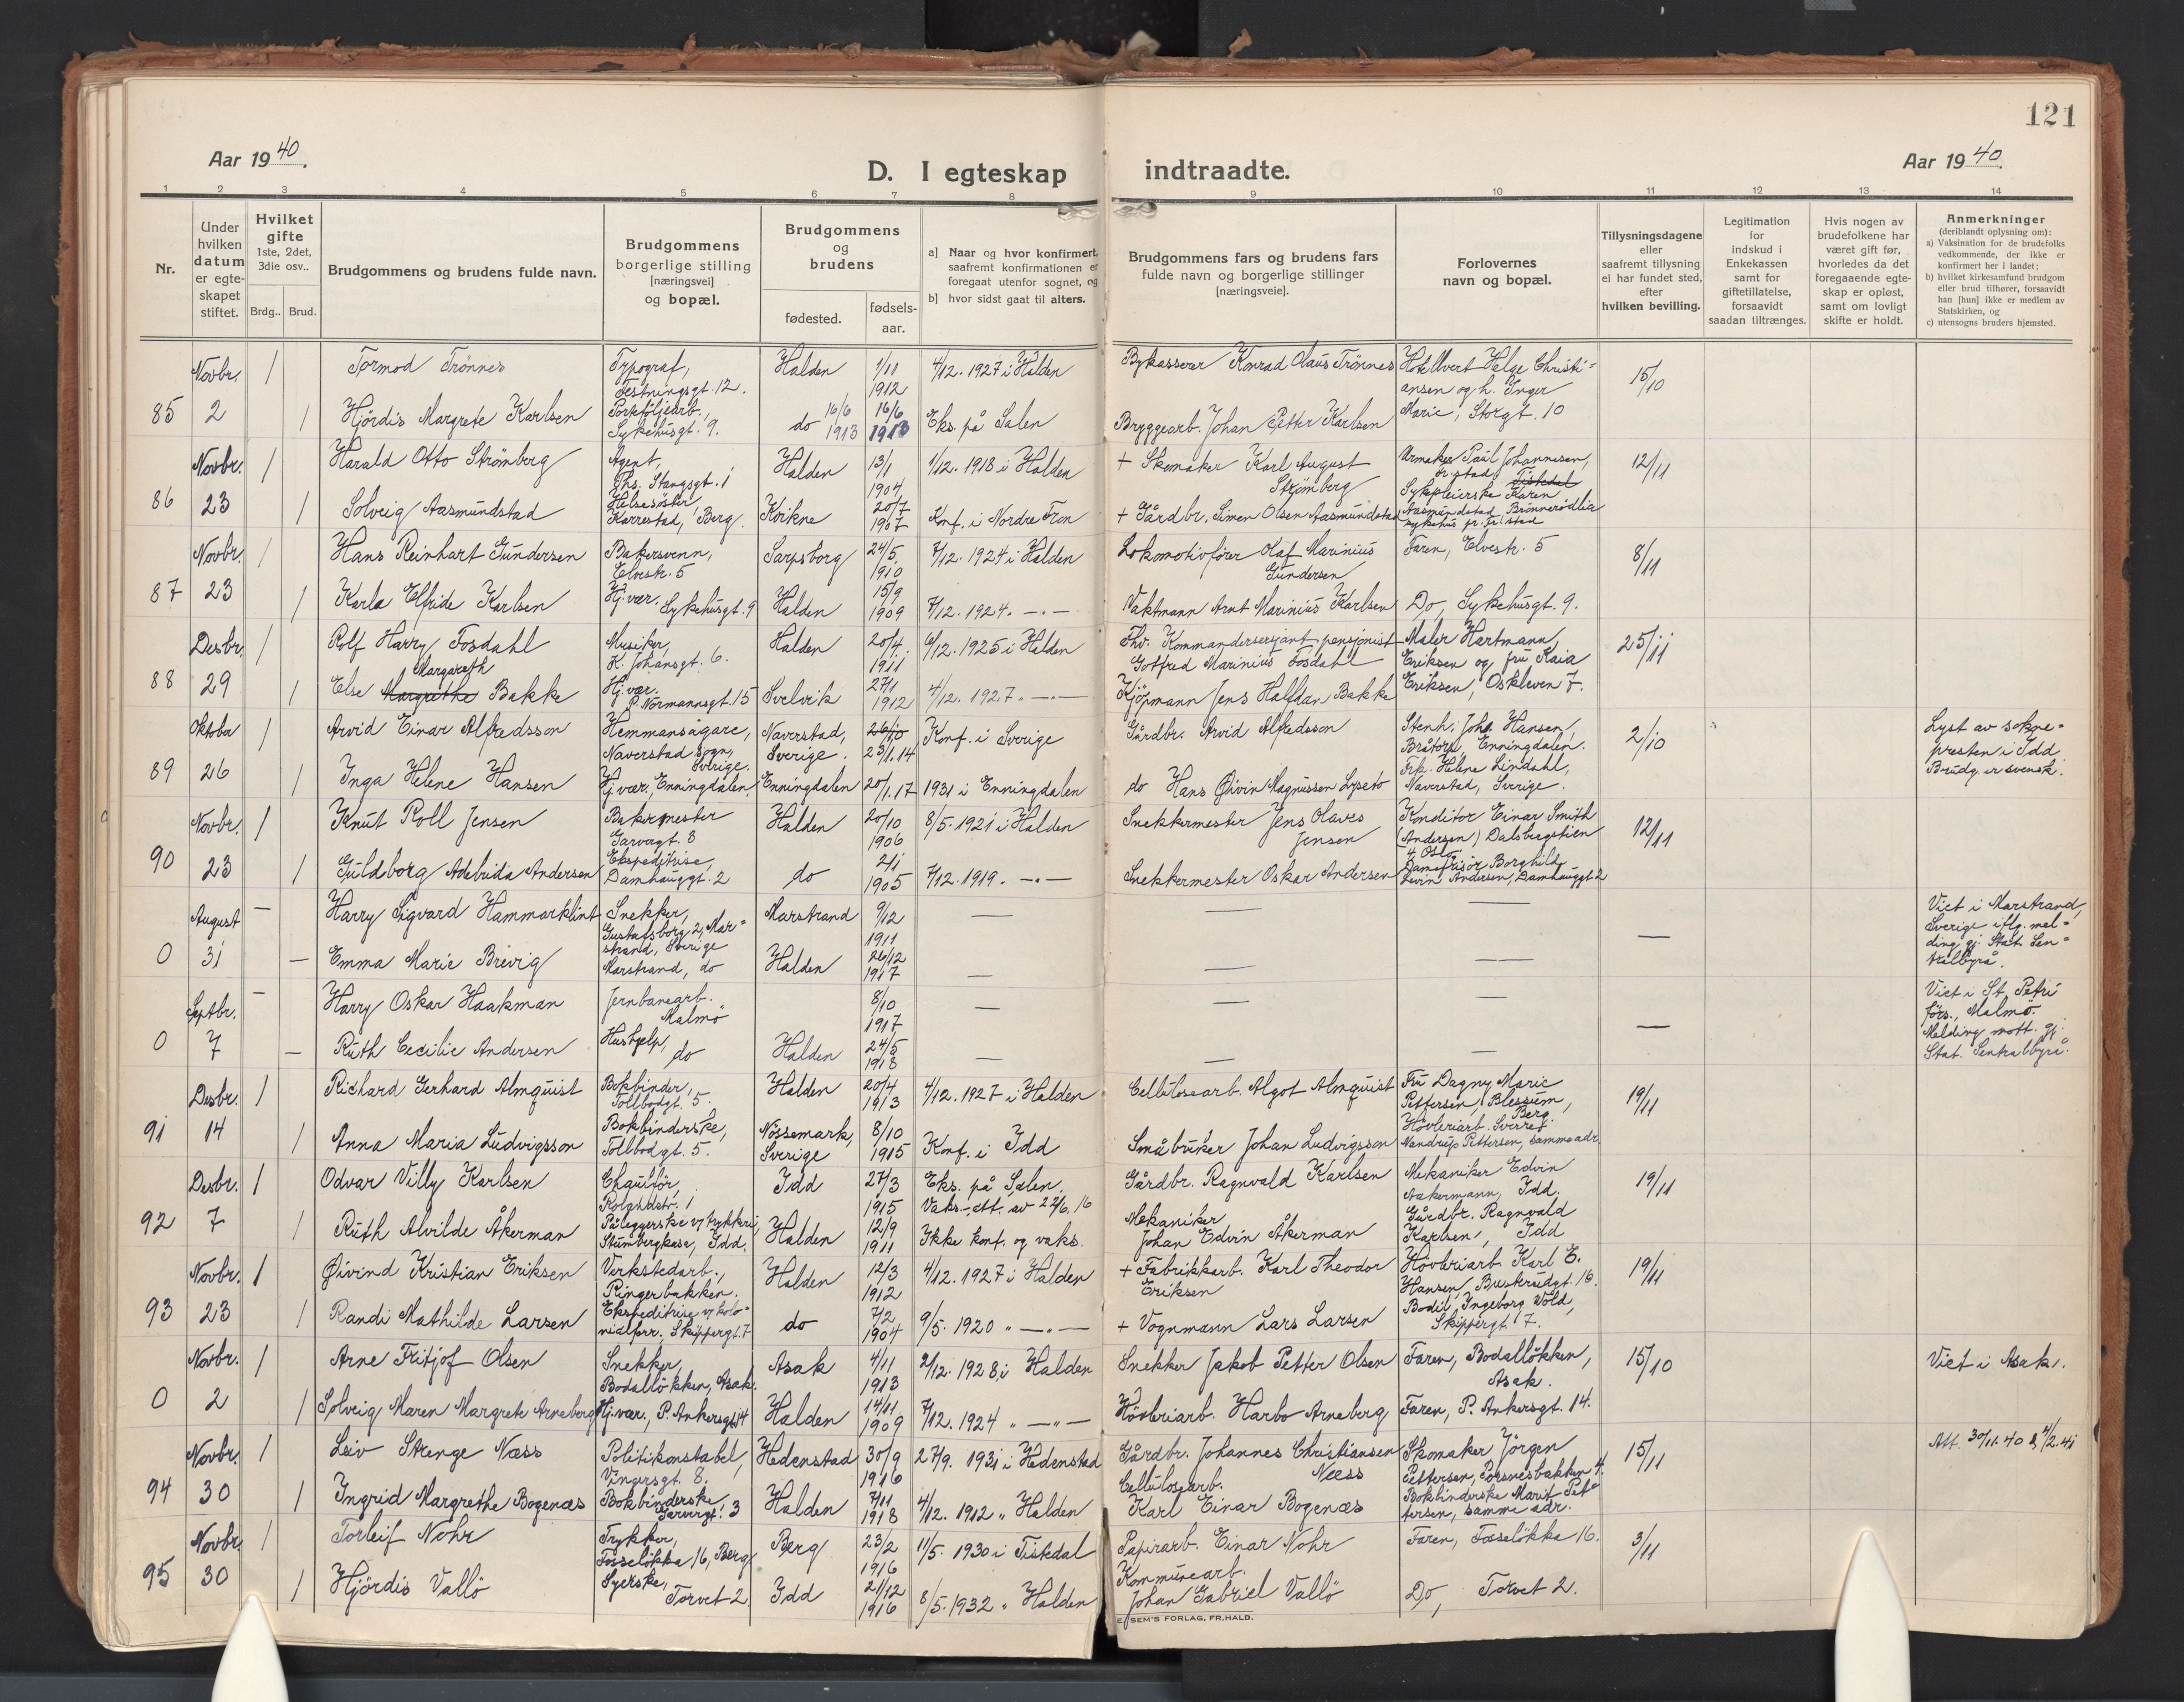 121
Aar 1940.
D. I egteskap indtraadte.
Aar 1940.
1 2 3 4 5 6 7 8 9 10 11 12 13 14
Nr.
Under hvilken datum er egteskapet stiftet.
Hvilket gifte 1ste, 2det, 3die osv..
Brdg.. Brud.
Brudgommens og brudens fulde navn.
Brudgommens borgerlige stilling [næringsvei] og bopæl.
Brudgommens og brudens
fødested.
fødsels-aar.
a] Naar og hvor konfirmert, saafremt konfirmationen er foregaat utenfor sognet, og
b] hvor sidst gaat til alters.
Brudgommens fars og brudens fars fulde navn og borgerlige stillinger [næringsveie].
Forlovernes navn og bopæl.
Tillysningsdagene eller saafremt tillysning ei har fundet sted, efter hvilken bevilling.
Legitimation for indskud i Enkekassen samt for giftetillatelse, forsaavidt saadan tiltrænges.
Hvis nogen av brudefolkene har været gift før, hvorledes da det foregaaende egteskap er opløst, samt om lovligt skifte er holdt.
Anmerkninger (deriblandt oplysning om):
a) Vaksination for de brudefolks vedkommende, der ikke er konfirmert her i landet;
b) hvilket kirkesamfund brudgom eller brud tilhører, forsaavidt han [hun] ikke er medlem av Statskirken, og
c) utensogns bruders hjemsted.
85 Novbr. 2
1 Tormod Trønnes Typograf, Festningsgt. 12. Halden 1/11 1912 4/12. 1927 i Halden Bykasserer Konrad Olaus Trønnes Hotellvert Helge Christiansen og h. Inger Marie, Storgt. 10 15/10
1 Hjördis Margrete Karlsen Portföljearb., Sykehusgt. 9. do 16/6 1913 16/6 1913 Eks. på Salen Bryggearb. Johan Petter Karlsen
86 Novbr. 23
1 Harald Otto Strömberg Agent, Ths. Stangsgt. 1 Halden 13/1 1904 1/12. 1918 i Halden + Skomaker Karl August Strömberg Urmaker Paul Johannesen, Fr.stad, Tistedal 12/11
1 Solveig Aasmundstad Helsesöster Karrestad, Berg. Kvikne 20/7 1907 Konf. i Nordre Fron + Gårdbr. Simen Olsen Aasmundstad Sykepleierske Karen Aasmundstad, Brönneródlia sykehus pr. Fr.stad
87 Novbr. 23
1 Hans Reinhart Gundersen Bakersvenn, Elvestr. 5 Sarpsborg 24/5 1910 7/12. 1924 i Halden Lokomotivfører Olaf Marinius Gundersen Faren, Elvestr. 5 8/11
1 Karla Elfride Karlsen Hj.vær. Sykehusgt. 9 Halden 15/9 1909 7/12. 1924. —„— Vaktmann Arnt Marinius Karlsen Do, Sykehusgt. 9.
88 Desbr. 29
1 Rolf Harry Fosdahl Musiker, K. Johansgt. 6. Halden 20/4. 1911 6/12. 1925 i Halden Fhv. Kommandersersjant, pensjonist Gotfred Marinius Fosdahl Maler Hartmann Eriksen og fru Kaia Eriksen, Oskleven 7. 25/11
1 Else Margrethe Margareth Bakke Hj.vær. P. Normannsgt. 15 Svelvik 27/1 1912 4/12. 1927. —„— Kjöpmann Jens Halfdan Bakke
89 Oktober 26
1 Arvid Einar Alfredsson Hemmansägare, Naverstad sogn, Sverige. Naverstad, Sverige. 26/10 23/1.14 Konf. i Sverige Gårdbr. Arvid Alfredsson Stenh. Johs Hansen, Bråtorp, Enningdalen. 2/10 Lyst av sokne-presten i Idd. Brudg. er svensk.
1 Inga Helene Hansen Hj.vær., Enningdalen. Enningdalen 20/1.17 1931 i Enningdalen do Hans Øivin Magnussen Lyseto Frk. Helene Lindahl, Naverstad, Sverige.
90 Novbr. 23
1 Knut Roll Jensen Bakermester Garvergt. 8 Halden 20/10 1906 8/5. 1921 i Halden Snekkermester Jens Olaves Jensen Konditor Einar Smith (Andersen) Dalsbergstien 4, Oslo 12/11
1 Guldborg Adebrida Andersen Ekspeditrise, Damhauggt. 2 do 2/1 1905 7/12. 1919. —„— Snekkermester Oskar Andersen Damefrisör Borghild Levin Andersen, Damhauggt 2
0 August 31
— Harry Sigvard Hammarklint Snekker, Gustafsborg 2, Marstrand, Sverige Marstrand 9/12 1911 — — — — Viet i Marstrand, Sverige iflg. melding gj. Stat. Sentralbyrå.
— Emma Marie Brevig Marstrand, do Halden 26/12 1917 — — —
0 Septbr. 7
— Harry Oskar Haakman Jernbanearb. Malmö 8/10 1917 — — — — Viet i St. Petri förs., Malmö. Melding mott. gj. Stat. Sentralbyrå.
— Ruth Cecilie Andersen Hushjelp, do Halden 24/5 1918 — — —
91 Desbr. 14
1 Richard Gerhard Almquist Bokbinder, Tollbodgt. 5. Halden 20/4 1913 4/12. 1927 i Halden Cellulosearb. Algot Almquist Fru Dagny Marie Pettersen, Blessum, Berg. 19/11
1 Anna Maria Ludvigsson Bokbinderske, Tollbodgt. 5. Nössemark, Sverige 8/10 1915 Konf. i Idd Småbruker Johan Ludvigsson Hövleriarb. Sverre Nandrup Pettersen, samme adr.
92 Desbr. 7
1 Odvar Villy Karlsen Chauffør, 1 Idd 27/3 1915 Eks. på Salen. Vaks.-att. av 27/6. 16 Gårdbr. Ragnvald Karlsen Mekaniker Edvin Aakermann, Idd. 19/11
1 Ruth Alvilde Åkerman Påleggerske v/ trykkeri, Stumbergkasa, Idd. Halden 12/9 1911 Ikke konf. og vaks. Mekaniker Johan Edvin Åkerman Gårdbr. Ragnvald Karlsen, Idd
93 Novbr. 23
1 Øivind Kristian Eriksen Verkstedarb., Ringerbakken. Halden 12/3 1912 4/12. 1927 i Halden + Fabrikkarb. Karl Theodor Eriksen Hövleriarb. Karl E. Hansen, Buskrudgt. 16. 19/11
1 Randi Mathilde Larsen Ekspeditrise v/ kolonialforr. Skippergt. 7 do 7/2 1904 9/5. 1920 „ —„— + Vognmann Lars Larsen Bodil Ingeborg Wold, Skippergt. 7.
0 Novbr. 2
1 Arne Fritjof Olsen Snekker, Bodallökken, Asak. Asak 4/11 1913 2/12. 1928 i Halden Snekker Jakob Petter Olsen Faren, Bodallökken, Asak. 15/10 Viet i Asak.
1 Solveig Maren Margrete Arneberg Hj.vær., P. Ankersgt. 14 Halden 14/11 1909 7/12. 1924 „ —„— Hövleriarb. Harbo Arneberg Faren, P. Ankersgt. 14.
94 Novbr. 30
1 Leiv Strenge Næss Politikonstabel, Vingersgt. 8. Hedenstad 30/9 1916 27/9. 1931 i Hedenstad Gårdbr. Johannes Christiansen Næss Skomaker Jörgen Pettersen, Porsnesbakken 4. 15/11 Att. 30/11.40 & 4/2.41
1 Ingrid Margrethe Bogenæs Bokbinderske, Garvergt. 3 Halden 7/11 1918 4/12. 1912 „ Halden Cellulosearb. Karl Einar Bogenæs Bokbinderske Marit Pettersen, samme adr.
95 Novbr. 30
1 Torleif Nohr Trykker, Fosseløkka 16, Berg Berg 23/2 1916 11/5. 1930 i Tistedal Papirarb. Einar Nohr Faren, Fosselökka 16. 3/11
1 Hjördis Vallö Syerske, Torvet 2 Idd 21/12 1916 8/5. 1932 „ Halden Kommunearb. Johan Gabriel Vallö Do, Torvet 2.
SEM'S FORLAG, FR.HALD.